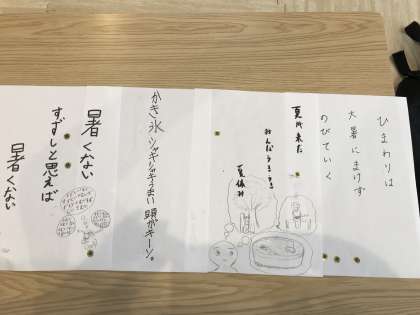 ひまわりは
大暑にまけず
のびていく
夏が来た
みんなうきうき
夏休み
かき氷 シャキシャキうまい 頭がキーン。
暑くない
すずしと思えば
暑くない